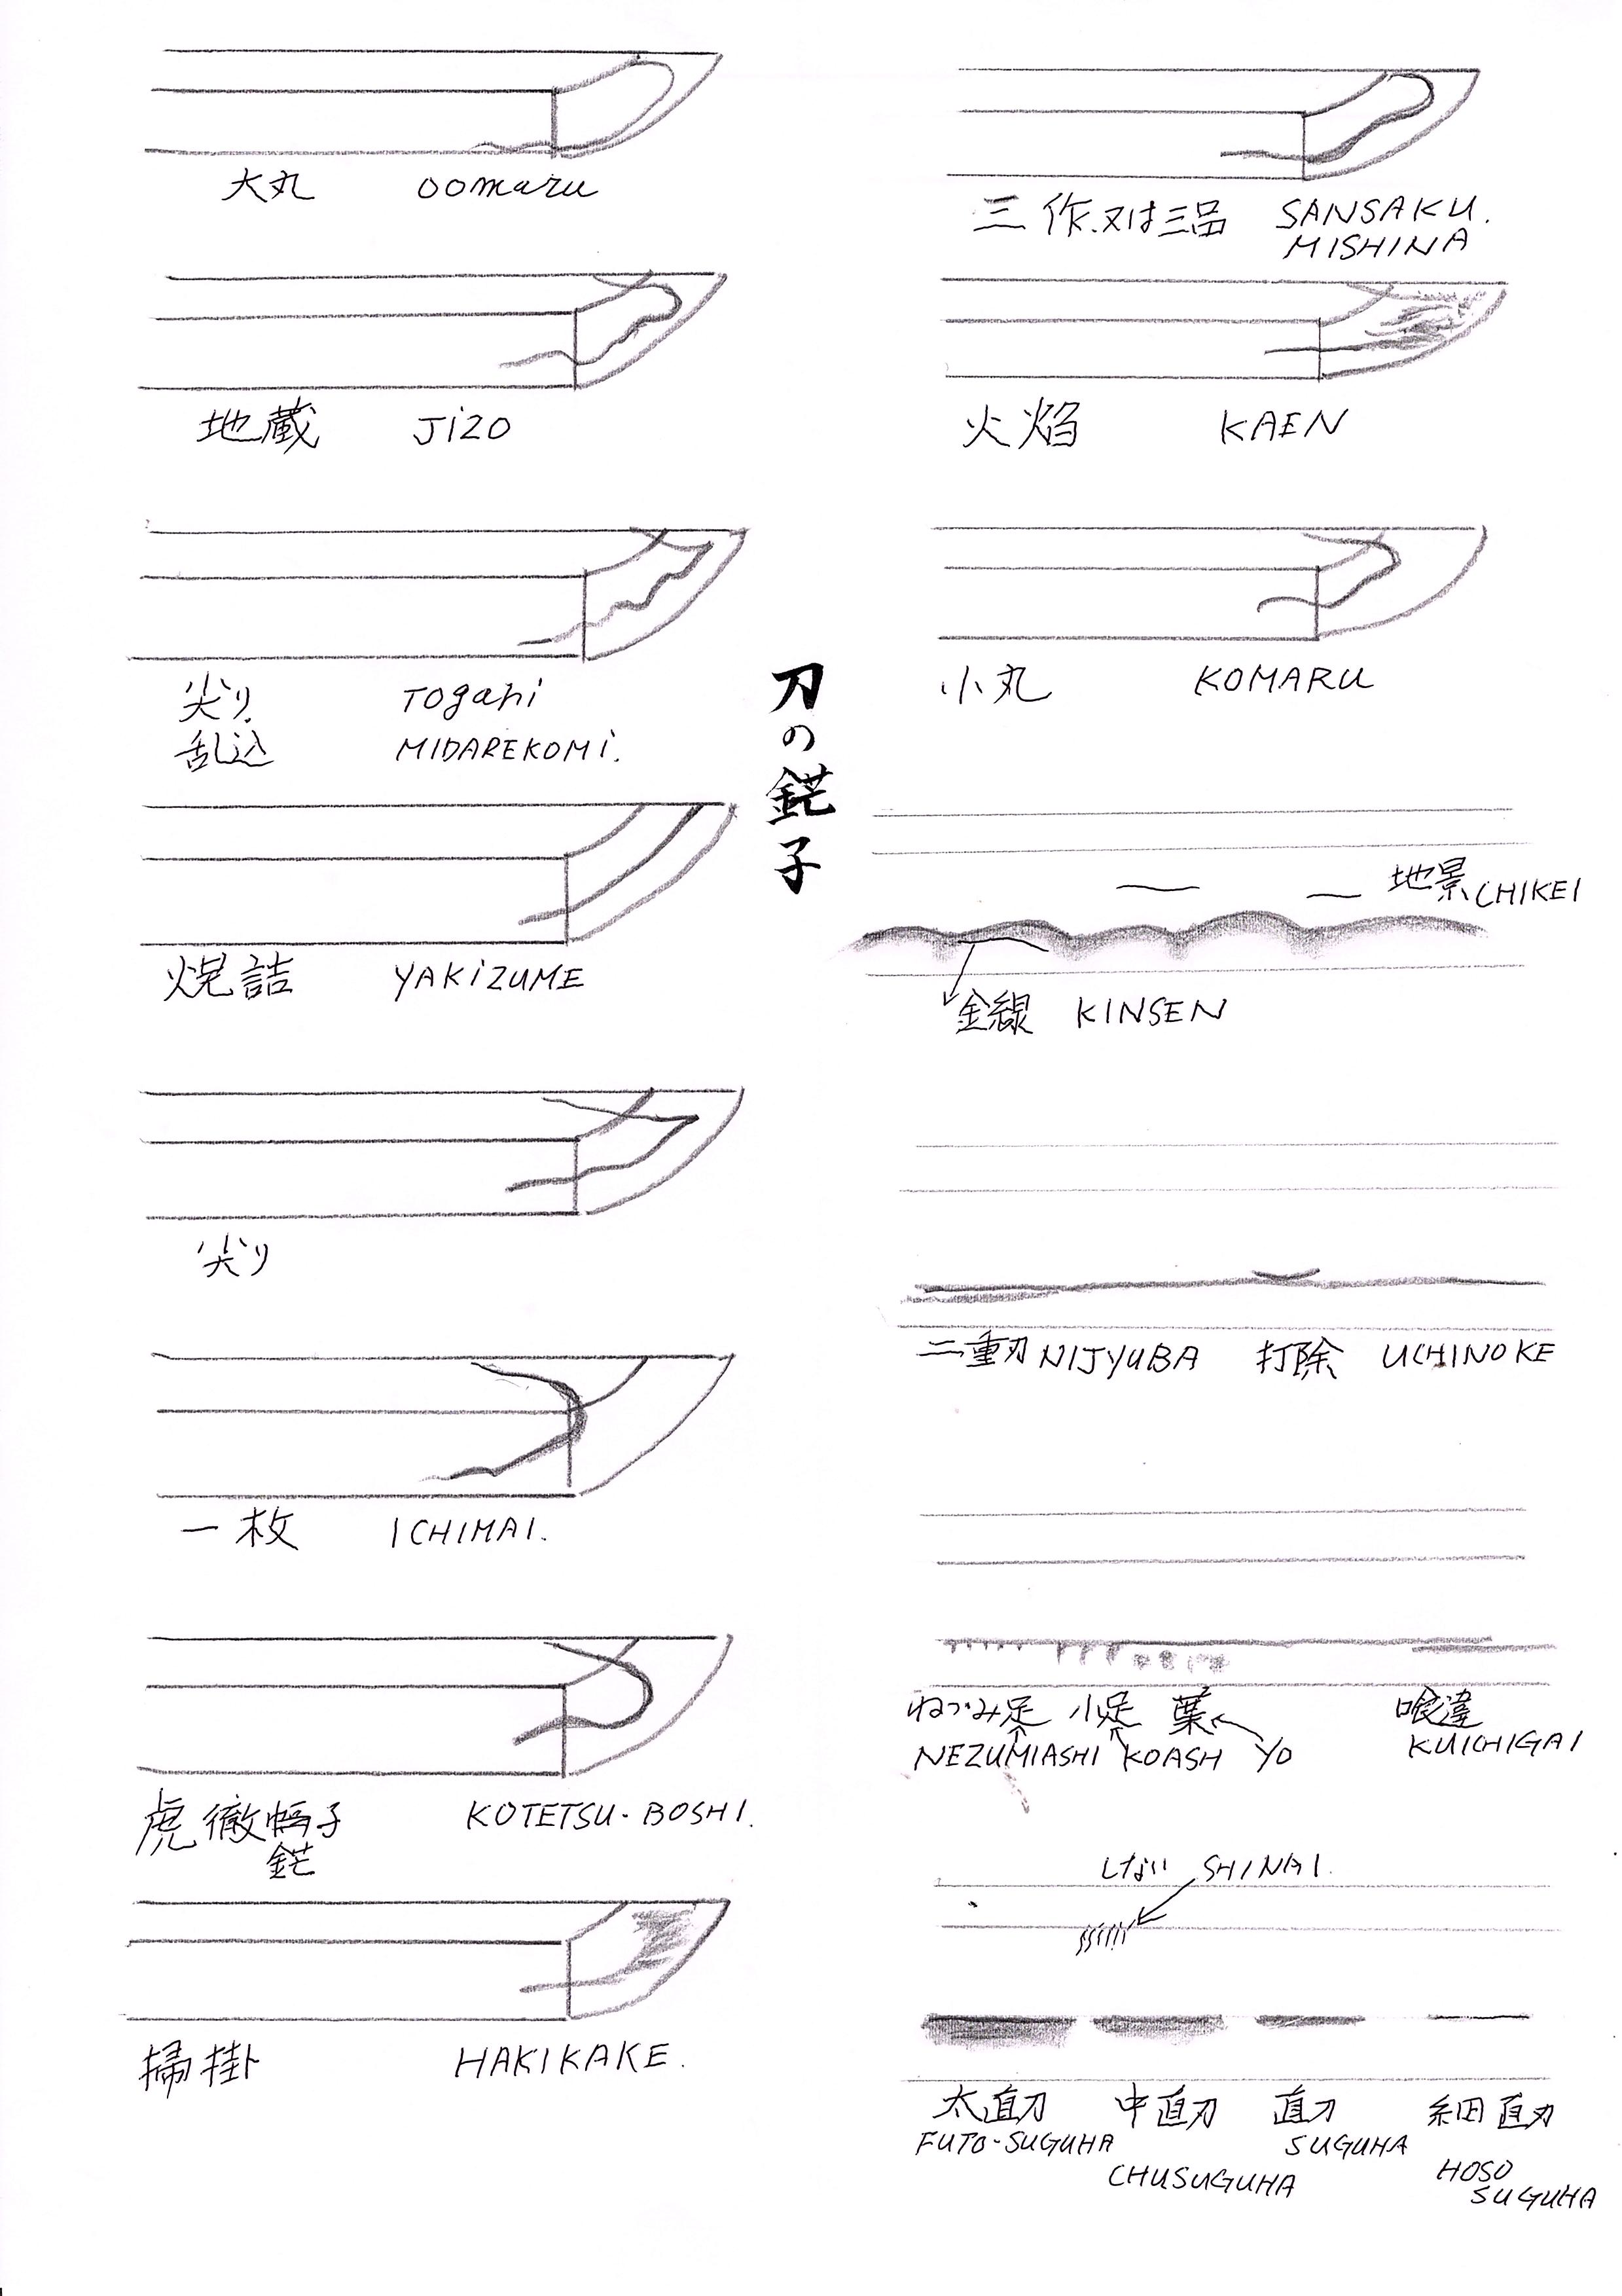 大丸 oomaru
地蔵 JiZO
尖り Togari
乱込 MIDAREKOMi.
焼詰 YAKiZUME
尖り
一枚 ICHIMAI.
虎徹帽子 KOTETSU-BOSHI.
鋩
掃掛 HAKIKAKE.
刀の鋩子
三作.又は三品 SANSAKU.
MISHINA
火焰 KAEN
小丸 KOMARU
地景 CHIKEI
金線 KINSEN
二重刃 NIJYUBA 打除 UCHINOKE
ねづみ足 小足 葉 喰違
NEZUMIASHI KOASH YO KUICHIGAI
しない SHINAI.
太直刃 中直刃 直刃 細直刃
FUTO-SUGUHA CHUSUGUHA SUGUHA HOSO
SUGUHA